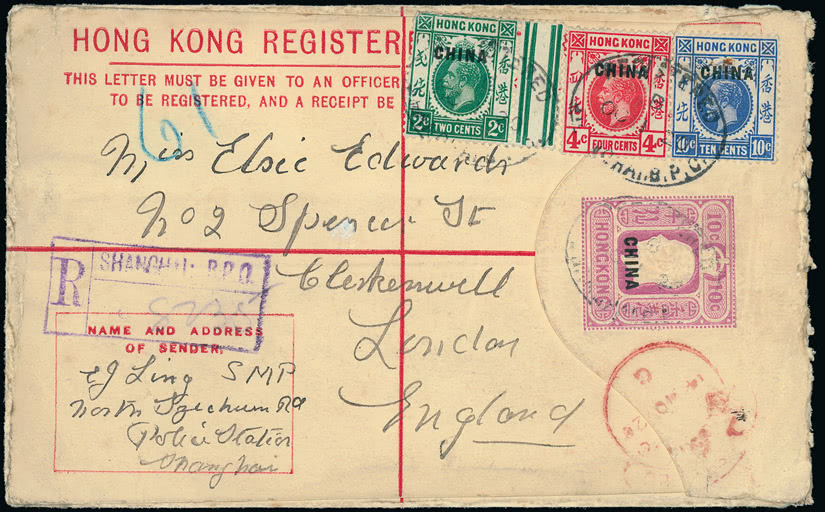 HONG KONG REGISTER
THIS LETTER MUST BE GIVEN TO AN OFFICER
TO BE REGISTERED, AND A RECEIPT BE
61
HONG KONG
CHINA
香港
TWO CENTS
2c 2c
HONG KONG
CHINA
香港
FOUR CENTS
4c 4c
HONG KONG
CHINA
香港
TEN CENTS
10c 10c
REGISTERED
HAI.B.P.O.
Miss Elsie Edwards
No 2 Spencer St
Clerkenwell
London
England
10c 10c
HONGKONG
CHINA
R
SHANGHAI B.P.O.
NAME AND ADDRESS
OF SENDER,
EJ Ling SMP
North Szechuen Rd
Police Station
Shanghai